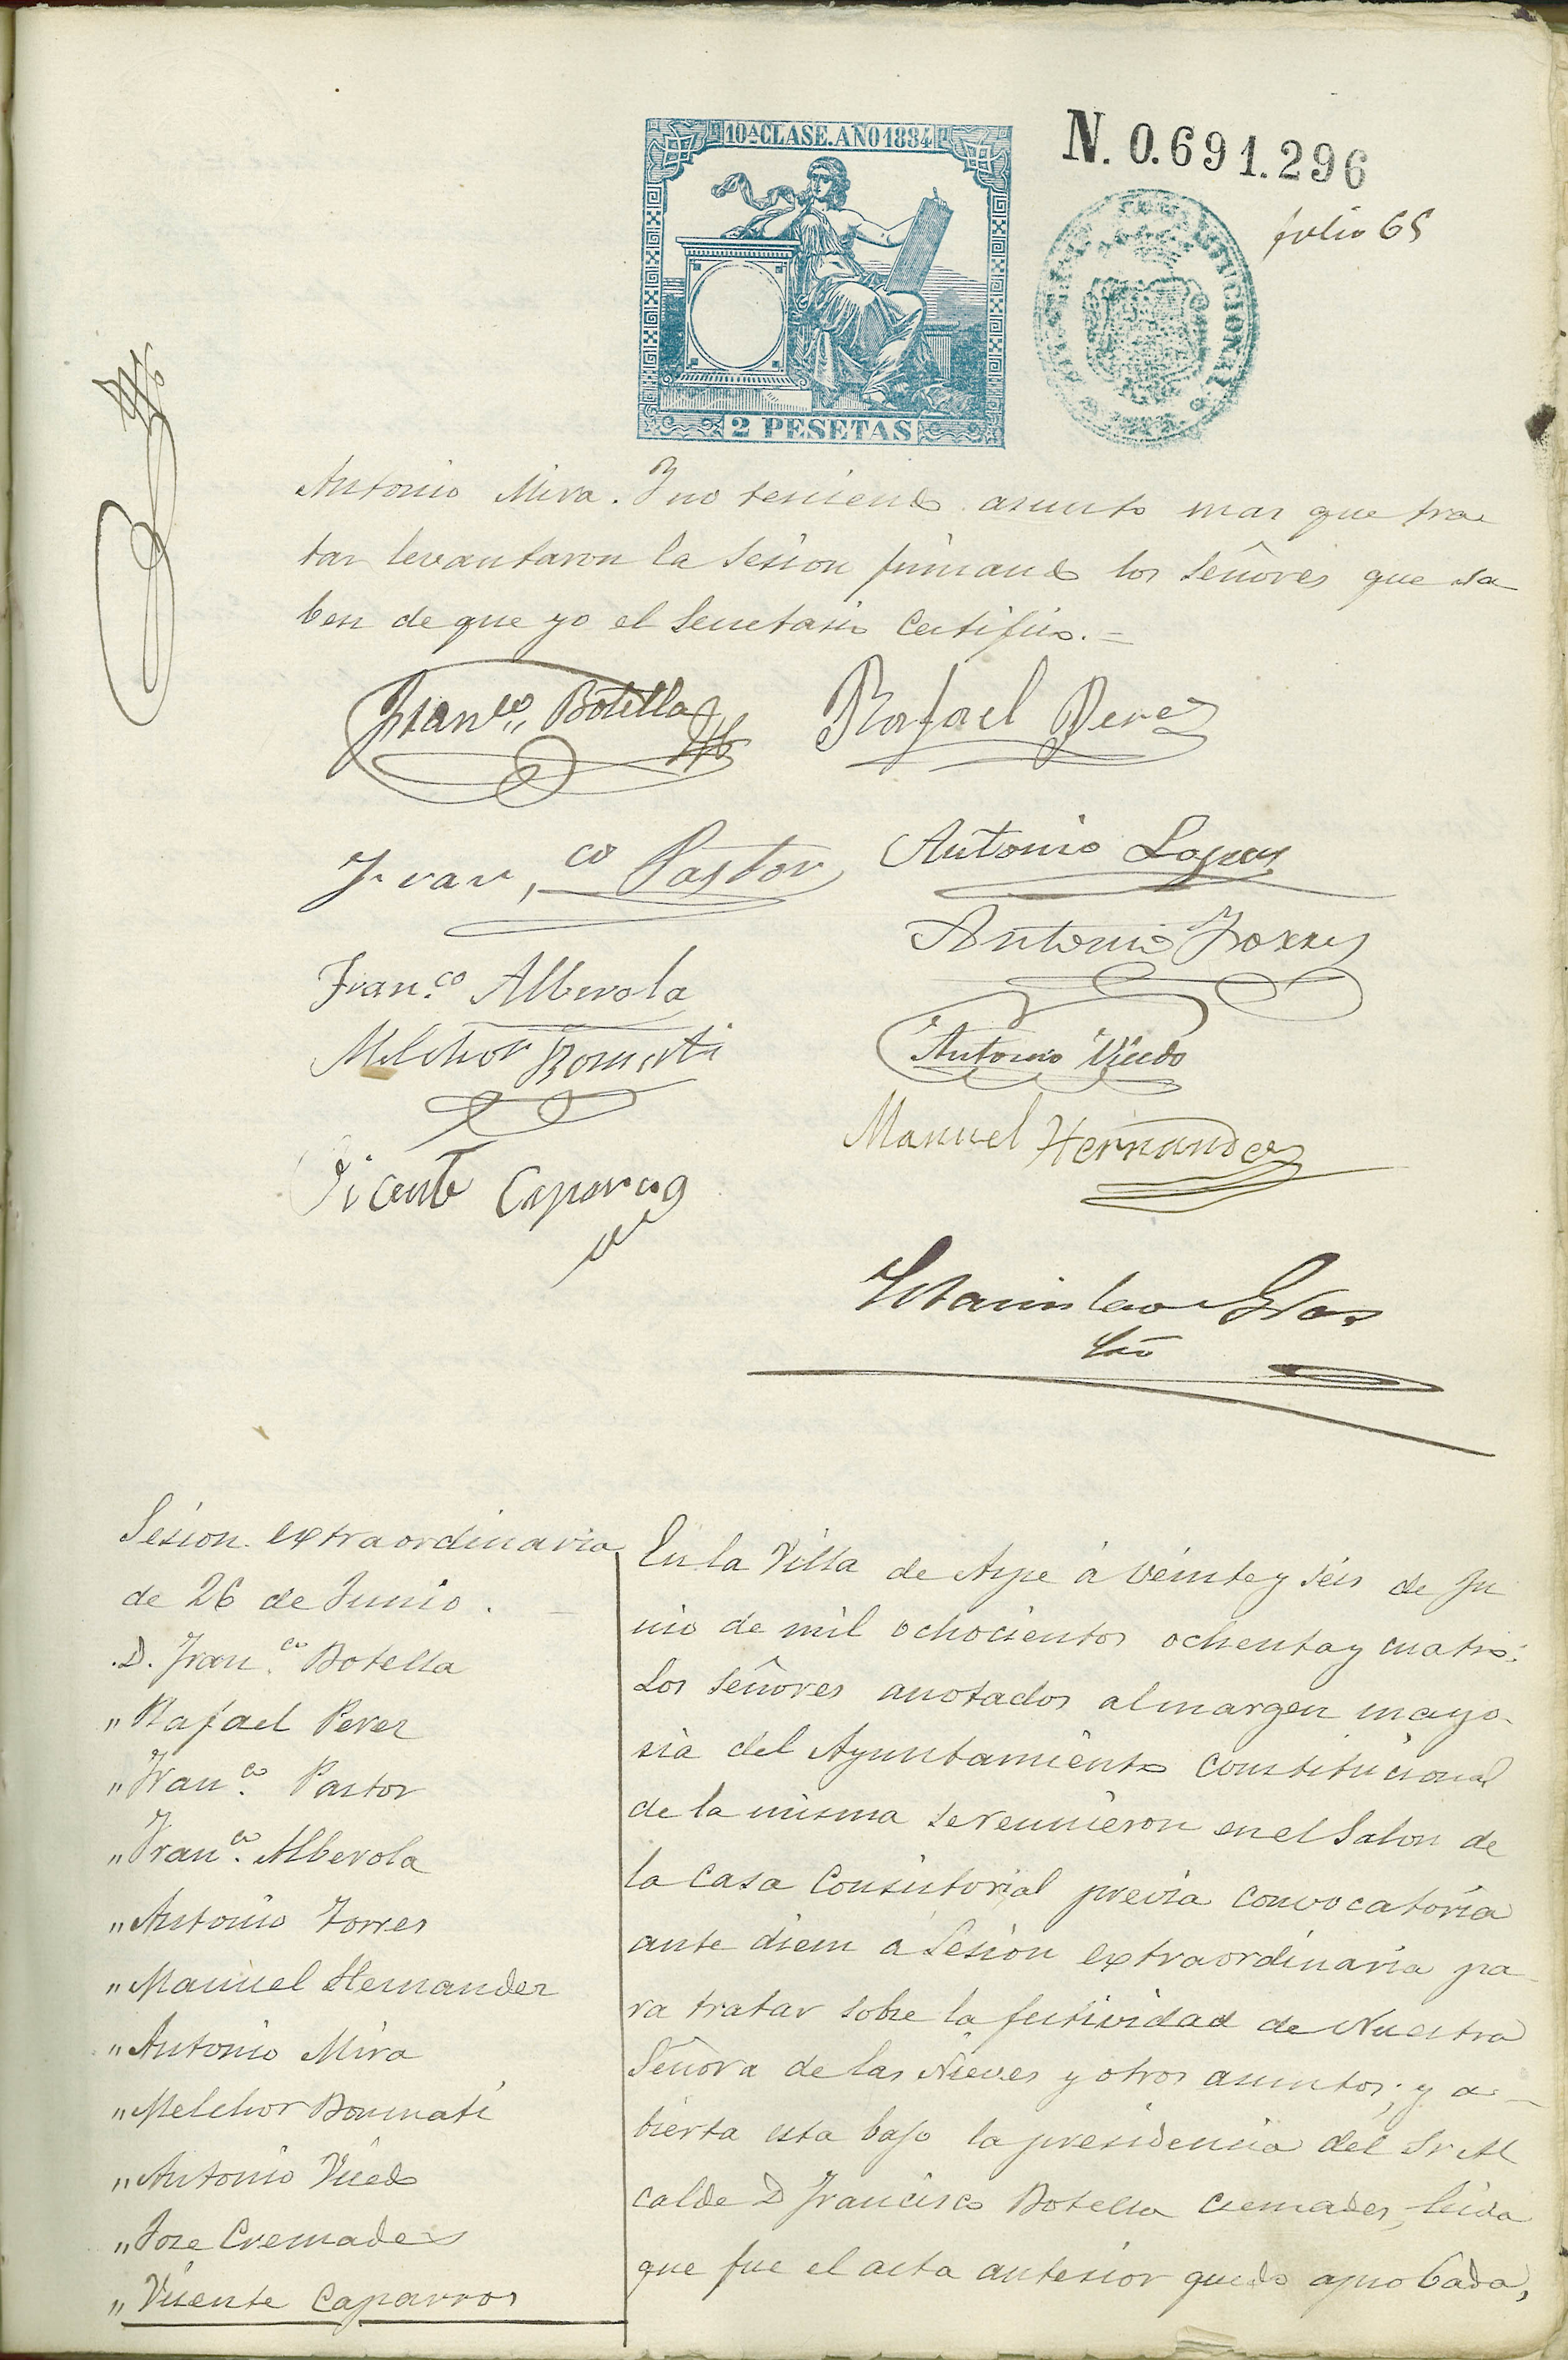 10ª CLASE. AÑO 1884
N. 0.691.296
folio 65
2 PESETAS
Antonio Mira. Y no teniendo asunto mas que tra
tar levantaron la Sesion firmando los Señores que sa
ben de que yo el Secretario Certifico.=
Fran.co Botella
Rafael Perez
Fran.co Pastor
Antonio Lopez
Antonio Torres
Fran.co Alberola
Antonio Vicedo
Melchor Bonmati
Manuel Hernandez
Vicente Caparros
Estanislao
Srio
Sesion extraordinaria
de 26 de Junio. —
D. Fran.co Botella
" Rafael Perez
" Fran.co Pastor
" Fran.co Alberola
" Antonio Torres
" Manuel Hernandez
" Antonio Mira
" Melchor Bonmati
" Antonio Vicedo
" Jose Cremades
" Vicente Caparros
En la Villa de Aspe á veinte y seis de Ju
nio de mil ochocientos ochenta y cuatro:
Los Señores anotados al margen mayo-
ria del Ayuntamiento constitucional
de la misma se reunieron en el Salon de
la Casa Consistorial previa convocatoria
ante diem a Sesion extraordinaria pa-
ra tratar sobre la festividad de Nuestra
Señora de las Nieves y otros asuntos; y a-
bierta esta bajo la presidencia del Sr Al
calde D Francisco Botella Cremades, leida
que fue el acta anterior quedo aprobada,